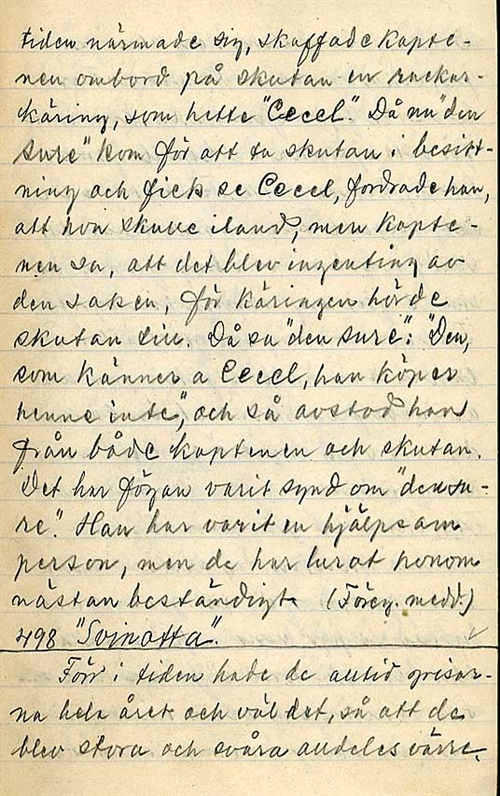 tiden närmade sig, skaffade kapte-
nen ombord på skutan en rackar-
käring, som hette "Cecel". Då nu "den
sure" kom för att ta skutan i besitt-
ning och fick se Cecel, fordrade han,
att hon skulle iland, men kapte-
nen sa, att det blev ingenting av
den saken, för käringen hörde
skutan till. Då sa "den sure": "Den,
som känner a Cecel, han köper
henne inte", och så avstod han
från både kaptenen och skutan.
Det har förgan varit synd om "den su-
re". Han har varit en hjälpsam
person, men de har lurat honom
nästan beständigt. (Föreg. medd.)
498 "Svinotta".
Förr i tiden hade de alltid grisar-
na hela året och väl det, så att de
blev stora och svåra alldeles värre.